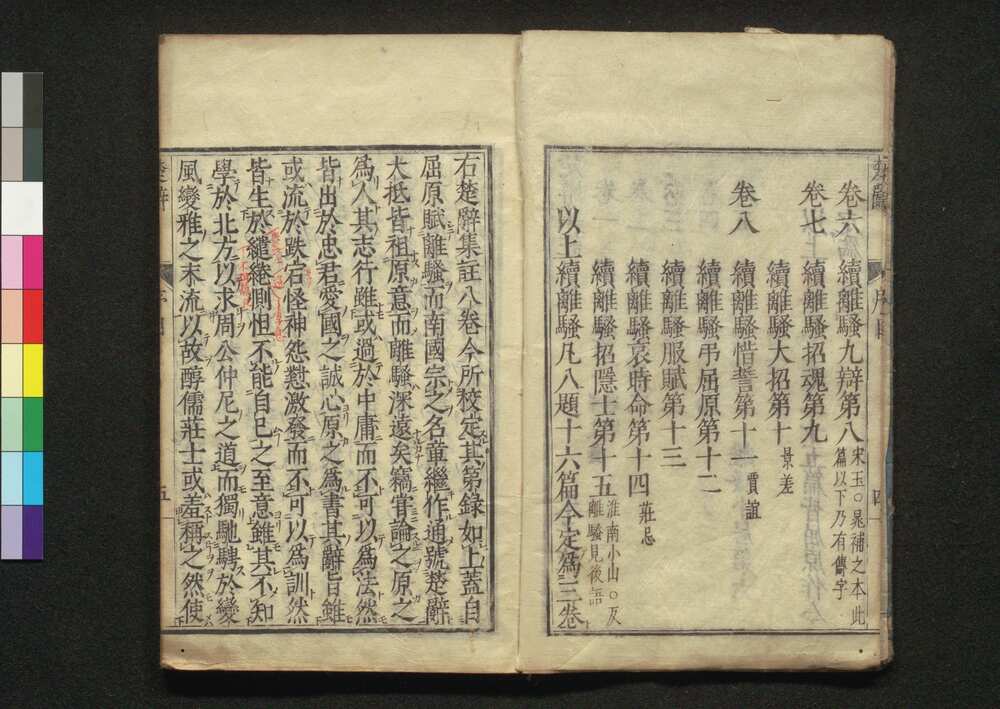 楚辭
序目
四
卷六 續離騷九辯第八 宋玉○晁補之本此篇以下乃有傳字
卷七 續離騷招魂第九
續離騷大招第十 景差
卷八 續離騷惜誓第十一 賈誼
續離騷弔屈原第十二
續離騷服賦第十三
續離騷哀時命第十四 莊忌
續離騷招隱士第十五 淮南小山○反離騷見後語
以上續離騷凡八題十六篇今定爲三卷
右楚辭集註八卷今所校定其第錄如上蓋自
屈原賦離騷而南國宗之名章繼作通號楚辭
大抵皆祖原意而離騷深遠矣竊嘗論之原之
爲人其志行雖或過於中庸而不可以爲法然
皆出於忠君愛國之誠心原之爲書其辭旨雖
或流於跌宕怪神怨懟激發而不可以爲訓然
皆生於繾綣惻怛不能自已之至意雖其不知
學於北方以求周公仲尼之道而獨馳騁於變
風變雅之末流以故醇儒莊士或羞稱之然使
楚辭
序目
五